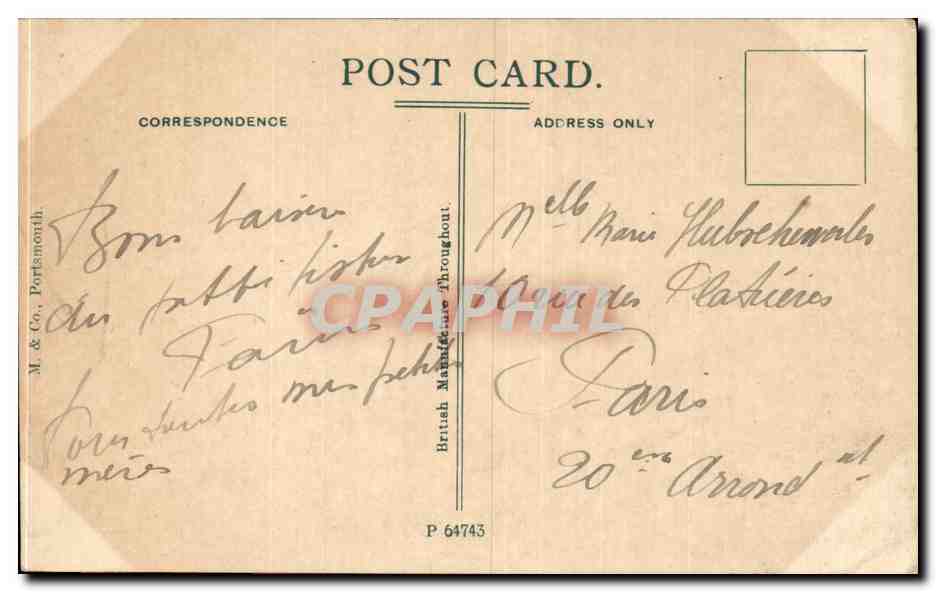 POST CARD.
CORRESPONDENCE
ADDRESS ONLY
Bons baisers
du
Paris
Pour toutes mes petites
mères
Melle Marie
rue des Platrières
Paris
20 eme Arrond nt
M. & Co., Portsmouth.
British Manufacture Throughout.
P 64743
CPAPHIL